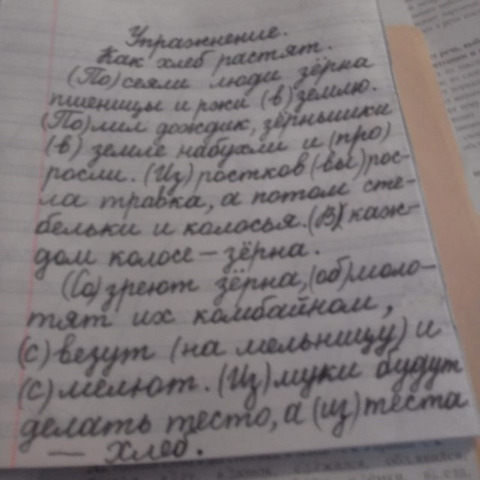 Упражнение.
Как хлеб растят.
(По)сеяли люди зёрна
пшеницы и ржи (в) землю.
(По)лил дождик, зёрнышки
(в) земле набухли и (про)
росли. (Из) ростков (вы)рос-
ла травка, а потом сте-
бельки и колосья. (В) каж-
дом колосе – зёрна.
(Со)зреют зёрна, (об)моло-
тят их комбайном,
(с)везут (на мельницу) и
(с)мелют. (Из) муки будут
делать тесто, а (из) теста
— хлеб.